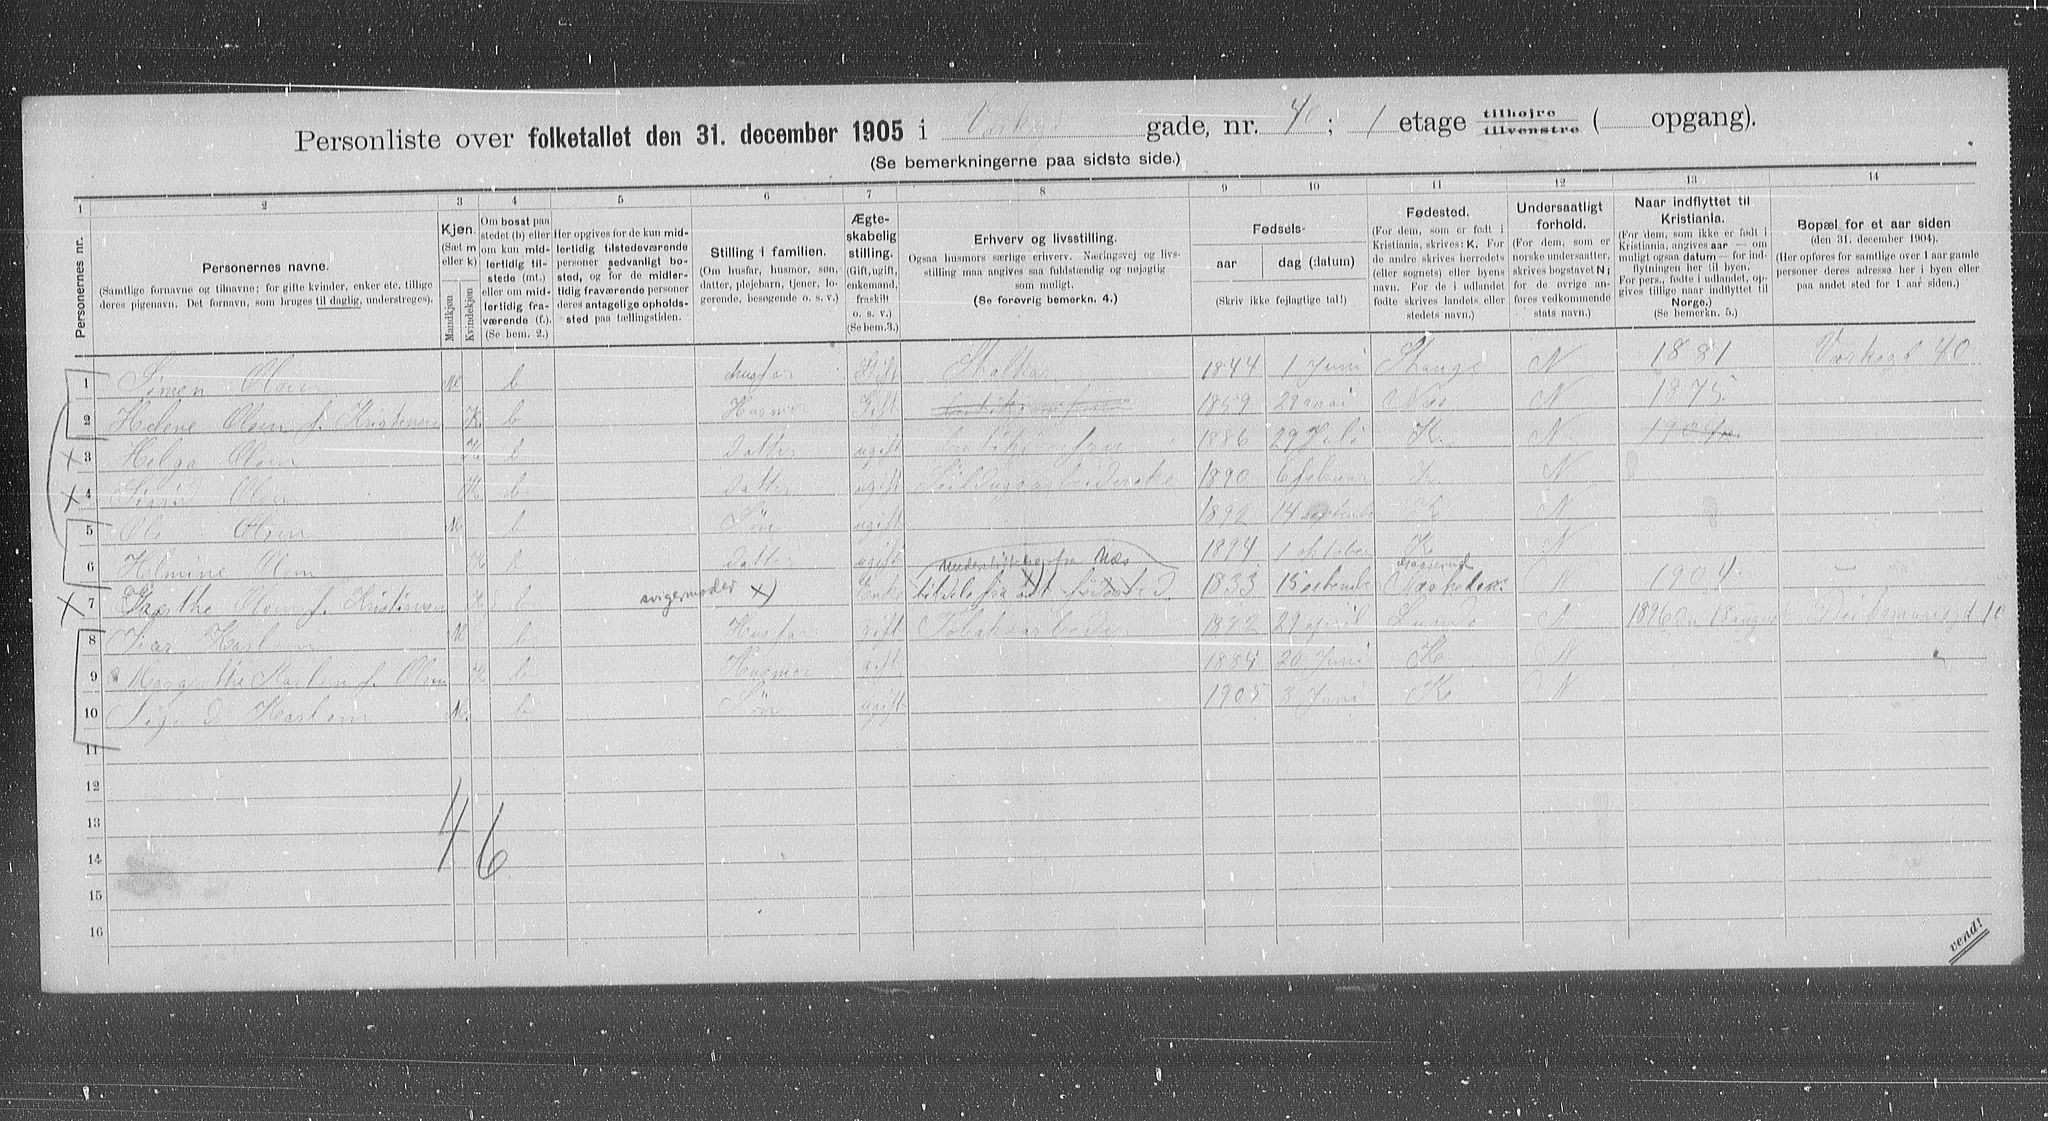 Personliste over folketallet den 31. december 1905 i gade, nr. 40; 1 etage tilhøjre tilvenstre ( opgang).
(Se bemerkningerne paa sidste side.)
1 2 3 4 5 6 7 8 9 10 11 12 13 14
Personernes nr.
Personernes navne.
(Samtlige fornavne og tilnavne; for gifte kvinder, enker etc. tillige deres pigenavn. Det fornavn, som bruges til daglig, understreges).
Kjøn.
(Sæt m eller k)
Mandkjøn Kvindekjøn
Om bosat paa stedet (b) eller om kun midlertidig tilstede (mt.) eller om midlertidig fraværende (f.). (Se bem. 2.)
Her opgives for de kun midlertidig tilstedeværende personer sedvanligt bosted, og for de midlertidig fraværende personer deres antagelige opholdssted paa tællingstiden.
Stilling i familien.
(Om husfar, husmor, søn, datter, plejebarn, tjener, logerende, besøgende o. s. v.)
Ægteskabelig stilling.
(Gift, ugift, enkemand, fraskilt o. s. v.) (Se bem. 3.)
Erhverv og livsstilling.
Ogsaa husmors særlige erhverv. Næringsvej og livsstilling maa angives saa fuldstændig og nøjagtig som muligt.
(Se forøvrig bemerkn. 4.)
Fødsels-
aar dag (datum)
(Skriv ikke fejlagtige tal!)
Fødested.
(For dem, som er født i Kristiania, skrives: K. For de andre skrives herredets (eller sognets) eller byens navn. For de i udlandet fødte skrives landets eller stedets navn.)
Undersaatligt forhold.
(For dem, som er norske undersaatter, skrives bogstavet N; for de øvrige anføres vedkommende stats navn.)
Naar indflyttet til Kristiania.
(For dem, som ikke er født i Kristiania, angives aar — om muligt ogsaa datum — for indflytningen her til byen. For pers., fødte i udlandet, opgives tillige naar indflyttet til Norge.)
(Se bemerkn. 5.)
Bopæl for et aar siden
(den 31. december 1904).
(Her opføres for samtlige over 1 aar gamle personer deres adresse her i byen eller paa andet sted for 1 aar siden.)
1 Simen Olsen M b husfar Gift 1844 1 Juni Stange N 1881 40
2 Helene Olsen f. Kristensen K. b Husmor Gift 1859 29 mai Næs N 1875
3 Helga Olsen K b datter ugift 1886 29 Juli K. N
4 Sigrid Olsen K b datter ugift 1890 6 februar K N
5 Ole Olsen M b Søn ugift 1892 14 K N
6 Helmine Olsen K b datter ugift 1894 1 oktober K N
7 Olsen f. Kristensen K b svigermoder x) Enke 1833 15 N 1904 —
8 Ivar Karlsen M b Husfar gift Tobaksarbeider 1882 29 april N 1896 18 august
9 Margrethe Karlsen f. Olsen K b Husmor gift 1884 20 Juni K N
10 Sigurd Karlsen M. b Søn ugift 1905 3 Juni K N
11
12
13
14
15
16
4 6
vend!